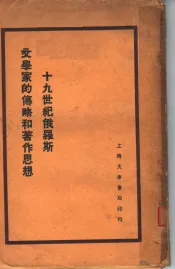 十九世紀俄羅斯
文學家的傳略和著作思想
上海大東書局印行